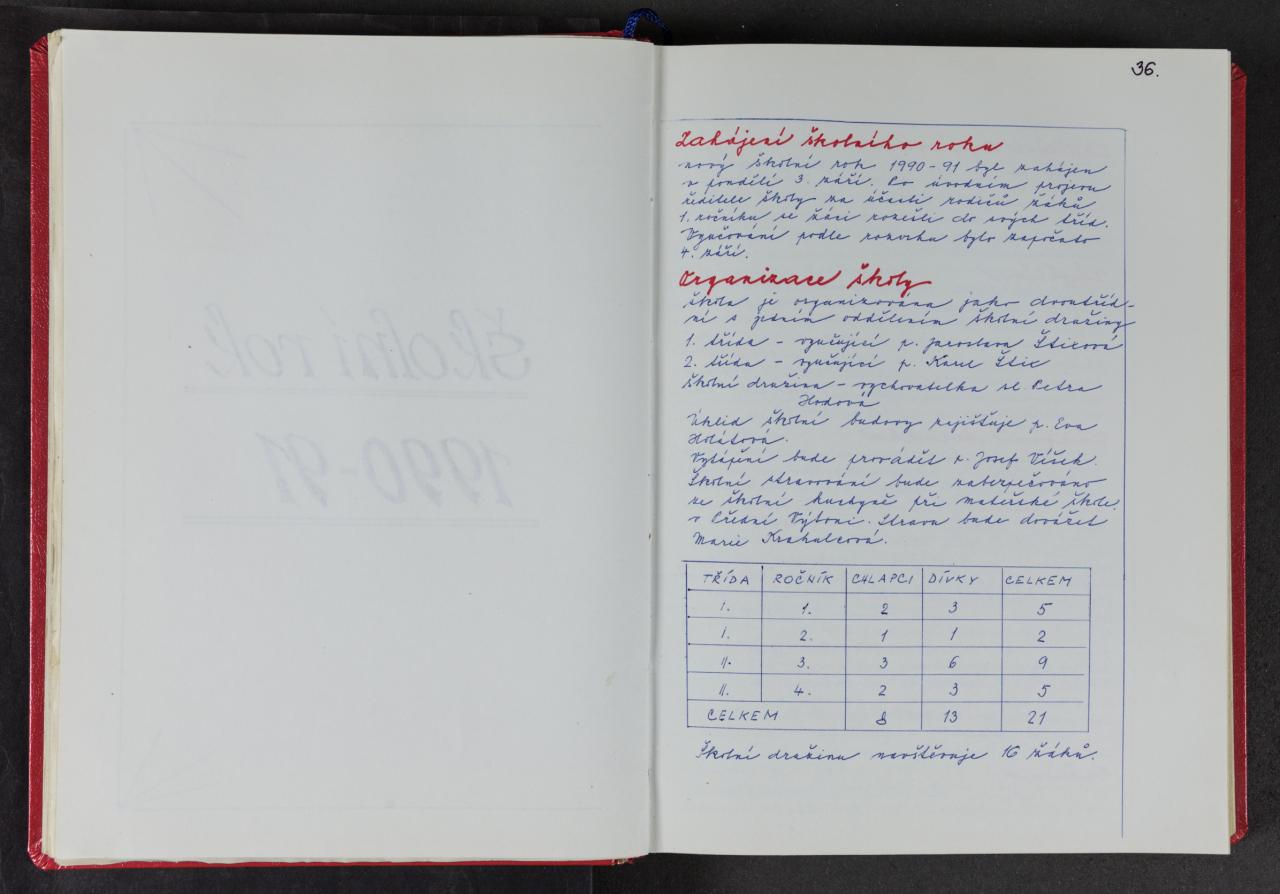 Školní rok
1990-91
36.
Zahájení školního roku
nový školní rok 1990-91 byl zahájen
v pondělí 3. září. Po úvodním projevu
ředitele školy za účasti rodičů žáků
1. ročníku se žáci rozešli do svých tříd.
Vyučování podle rozvrhu bylo započato
4. září.
Organizace školy
škola je organizována jako dvoutříd-
ní s jedním oddělením školní družiny
1. třída - vyučující p. Jaroslava Šticová
2. třída - vyučující p. Karel Štic
školní družina - vychovatelka sl. Petra
Hodová
Úklid školní budovy zajišťuje p. Eva
Holátová.
Vytápění bude provádět p. Josef Víšek.
Školní stravování bude zabezpečováno
ze školní kuchyně při mateřské škole
v Přední Výtoni. Stravu bude dovážet
Marie Krahulcová.
TŘÍDA ROČNÍK CHLAPCI DÍVKY CELKEM
I. 1. 2 3 5
I. 2. 1 1 2
II. 3. 3 6 9
II. 4. 2 3 5
CELKEM 8 13 21
Školní družinu navštěvuje 16 žáků.